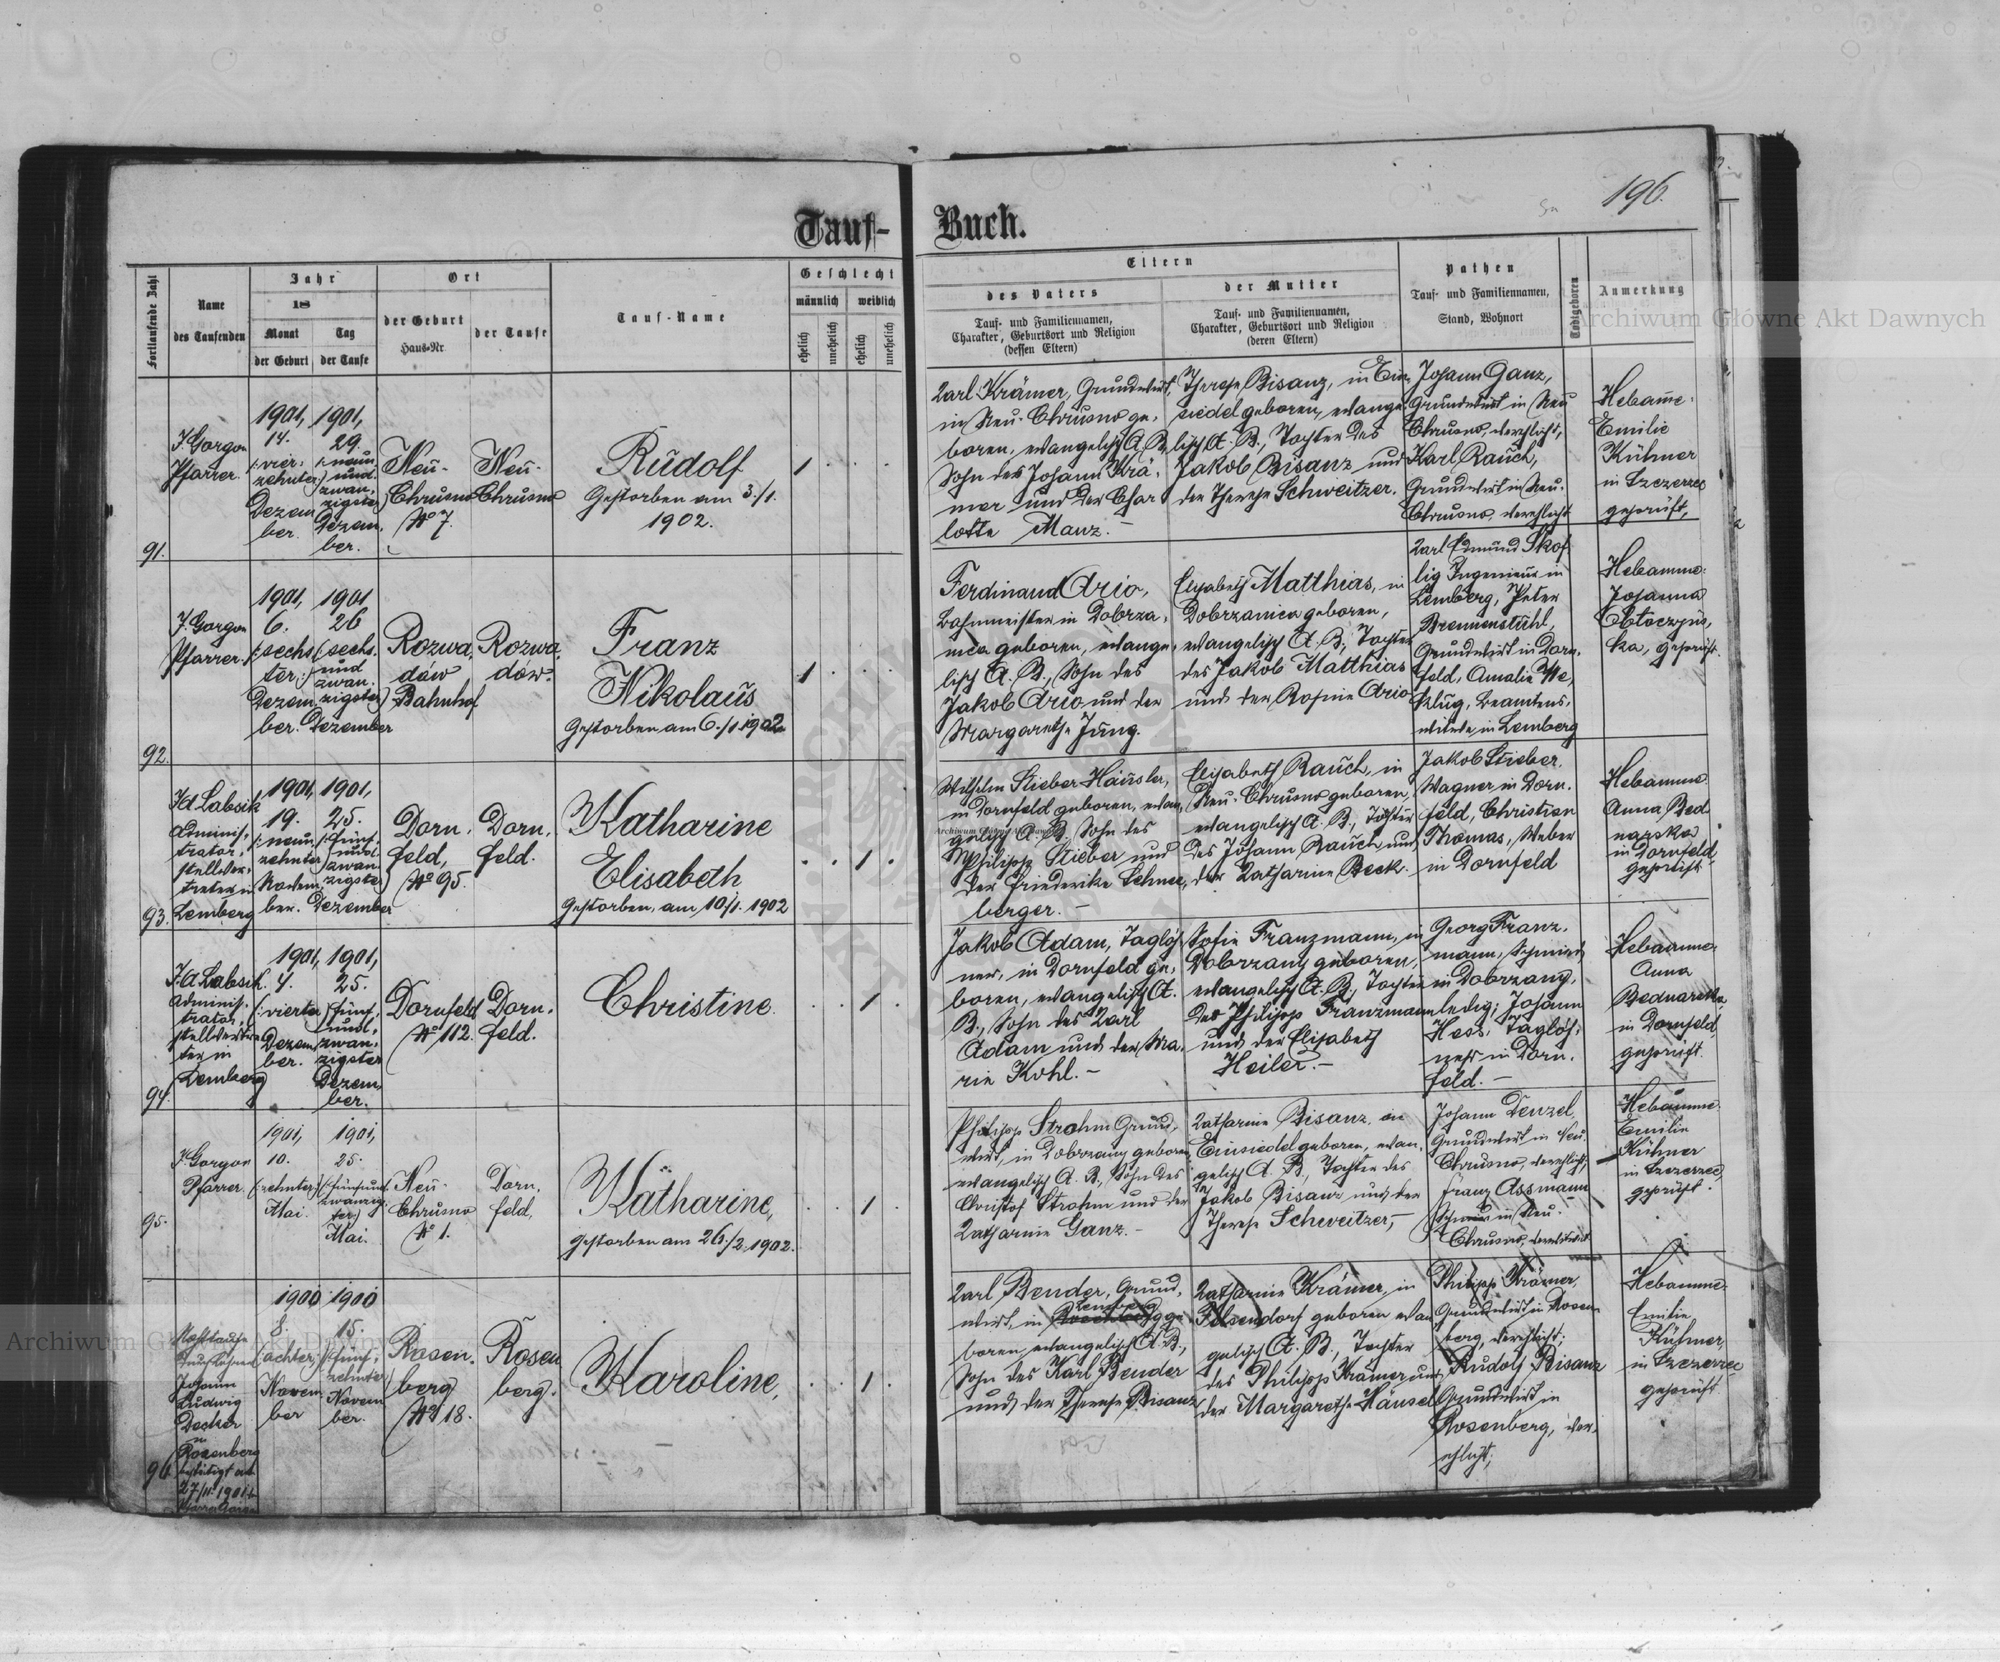 196.
Tauf-
Buch.
Fortlaufende Zahl
Name
des Taufenden
Jahr
18
Monat
der Geburt
Tag
der Taufe
Ort
der Geburt
Haus-Nr.
der Taufe
Tauf-Name
Geschlecht
männlich
weiblich
ehelich
unehelich
ehelich
unehelich
Eltern
des Vaters
Tauf- und Familiennamen,
Charakter, Geburtsort und Religion
(dessen Eltern)
der Mutter
Tauf- und Familiennamen,
Charakter, Geburtsort und Religion
(deren Eltern)
Pathen
Tauf- und Familiennamen,
Stand, Wohnort
Todtgeboren
Anmerkung
Archiwum Główne Akt Dawnych
91.
J. Gorgon
Pfarrer.
1901,
14.
(: vier-
zehnter:)
Dezem
ber.
1901,
29.
(: neun
und
zwan-
zigster)
Dezem.
ber.
Neu-
Chrusno
No 7.
Neu-
Chrusno
Rudolf
Gestorben am 3./1.
1902.
1
Karl Krämer, Grundwirt,
in Neu-Chrusno ge-
boren, evangelisch A. B.,
Sohn des Johann Krä-
mer und der Char
lotte Manz.-
Therese Bisanz, in Ein
siedel geboren, evange
lisch A. B., Tochter des
Jakob Bisanz und
der Therese Schweitzer.
Johann Ganz,
Grundwirt in Neu
Chrusno, verehlicht,
Karl Rauch,
Grundwirt in Neu-
Chrusno, verehlicht
Hebamme.
Emilie
Kühner
in Szczerzec
geprüft,
92.
J. Gorgon
Pfarrer.
1901,
6.
(: sechs
ter:)
Dezem
ber.
1901
26
(sechs.
und
zwan.
zigster)
Dezember
Rozwa,
dów
Bahnhof
Rozwa,
dów.
Franz
Nikolaus
Gestorben am 6./1. 1902
1
Ferdinand Ario,
Bahnmeister in Dobrza,
nica geboren, evange,
lisch A. B., Sohn des
Jakob Ario und der
Margarethe Jung.
Elisabeth Matthias, in
Dobrzanica geboren,
evangelisch A. B., Tochter
des Jakob Matthias
und der Rosine Ario
Karl Edmund Skof
lig Ingenieur in
Lemberg, Peter
Brennenstuhl,
Grundwirt in Dorn,
feld, Amalie We,
Beamtens,
witwe in Lemberg
Hebamme:
Johanna
ka, geprüft.
93.
Jd Labsik
Adminis,
trator,
stellver,
treter in
Lemberg
1901,
19.
(: neun,
zehnter)
Novem,
ber.
1901,
25.
(: fünf,
und
zwan
zigste)
Dezember
Dorn,
feld,
No 95.
Dorn,
feld.
Katharine
Elisabeth
Gestorben, am 10./1. 1902
1
Wilhelm Stieber Häusler,
in Dornfeld geboren, evan,
gelisch A. B., Sohn des
Philipp Stieber und
der Friederike Schnee,
berger.-
Elisabeth Rauch, in
Neu-Chrusno geboren,
evangelisch A. B., Tochter
des Johann Rauch und
der Katharine Beck.
Jakob Stieber,
Wagner in Dorn,
feld, Christian
Thomas, Weber
in Dornfeld
Hebamme
Anna Bed
narska
in Dornfeld,
geprüft
94.
Jd Labsik.
Adminis,
trator,
stellvertre
ter in
Lemberg
1901,
4.
(: vierter)
Dezem
ber.
1901,
25.
(fünf,
und,
zwan,
zigster
Dezem,
ber.
Dornfeld
No 112.
Dorn,
feld.
Christine.
1
Jakob Adam, Taglöh
ner, in Dornfeld ge,
boren, evangelisch A.
B., Sohn des Karl
Adam und der Ma,
rie Kohl.-
Sofie Franzmann, in
Dobrzany geboren,
evangelisch A. B., Tochter
des Philipp Franzmann
und der Elisabeth
Heiler.-
Georg Franz,
mann, Schmied
in Dobrzany,
ledig; Johann
Hess, Taglöh,
ner in Dorn,
feld.-
Hebamme
Anna
Bednarska
in Dornfeld,
geprüft.
95.
J. Gorgon
Pfarrer
1901,
10.
(zehnter)
Mai.
1901,
25.
(: fünfund
zwanzig
ster)
Mai.
Neu-
Chrusno
No 1.
Dorn,
feld,
Katharine,
Gestorben am 26./2. 1902.
1
Philipp Strohm Grund,
wirt, in Dobrzany geboren,
evangelisch A. B., Sohn des
Christof Strohm und der
Katharine Ganz.-
Katharine Bisanz, in
Einsiedel geboren, evan,
gelisch A. B., Tochter des
Jakob Bisanz und der
Therese Schweitzer,-
Johann Denzel,
Grundwirt in Neu.
Chrusno, verehlicht,
Franz Assmann
in Neu-
Chrusno, verehlicht
Hebamme
Emilie
Kühner
in Szczerzec,
geprüft.
96
Nothtaufe
Johann
Ludwig
Decker
in
Rosenberg
bestätigt am
27/11. 1901
Pfarrer Gorgon
1900
8.
(achter)
Novem
ber
1900
15.
(: fünf,
zehnter
Novem
ber.
Rosen,
berg
No 18.
Rosen
berg.
Karoline,
1
Karl Bender, Grund,
wirt, in Rosenberg ge
boren, evangelisch A. B.,
Sohn des Karl Bender
und der Therese Bisanz
Katharine Krämer, in
Falkendorf geboren evan
gelisch A. B., Tochter
des Philipp Krämer und
der Margarethe Häusel
Philipp Krämer,
Grundwirt in Rosen
berg, verehlicht;
Rudolf Bisanz
Grundwirt in
Rosenberg, ver,
ehlicht;
Hebamme.
Emilie
Kühner,
in Szczerzec
geprüft
Archiwum Główne Akt Dawnych